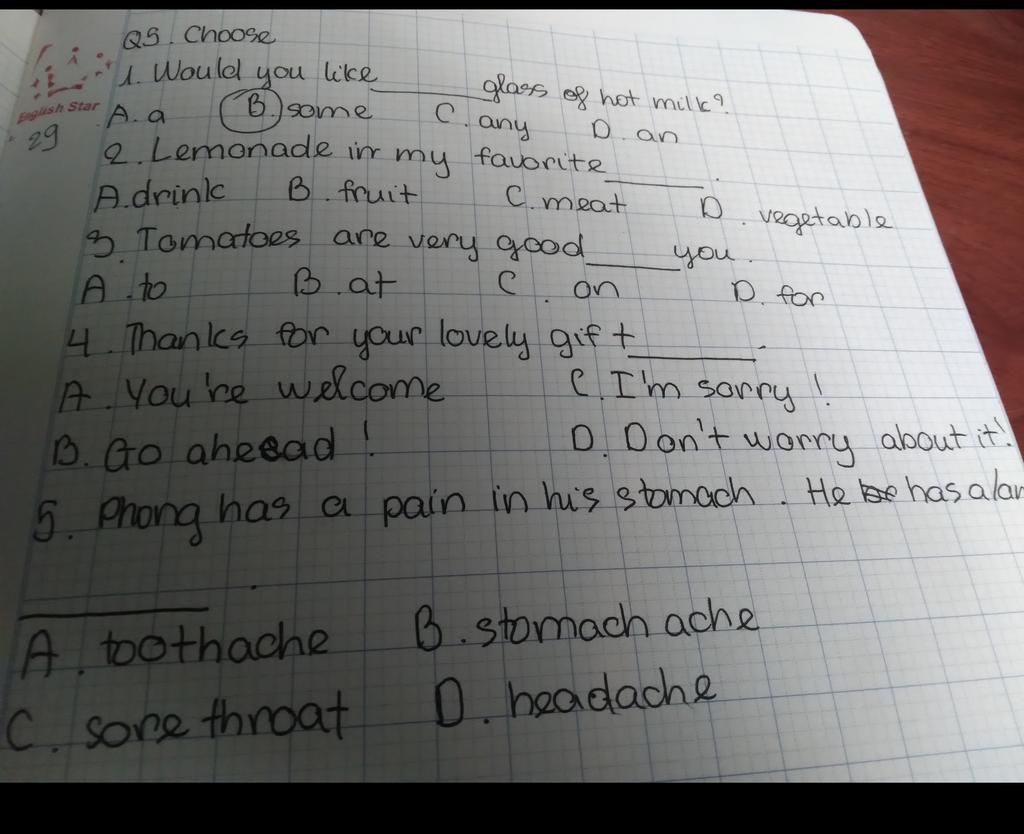 Q5. Choose
1. Would you like ______ glass of hot milk?
A. a B. some C. any D. an
2. Lemonade in my favorite ______.
A. drink B. fruit C. meat D. vegetable
3. Tomatoes are very good ____ you.
A. to B. at C. on D. for
4. Thanks for your lovely gift ______.
A. You're welcome C. I'm sorry!
B. Go ahead! D. Don't worry about it!
5. Phong has a pain in his stomach. He has a
______.
A. toothache B. stomach ache
C. sore throat D. headache
English Star
29